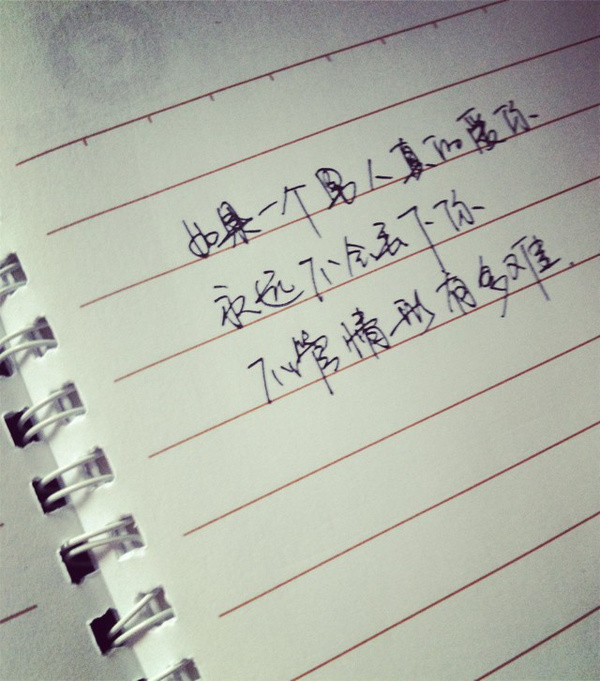 如果一个男人真的爱你
永远不会丢下你
不管情形有多难.